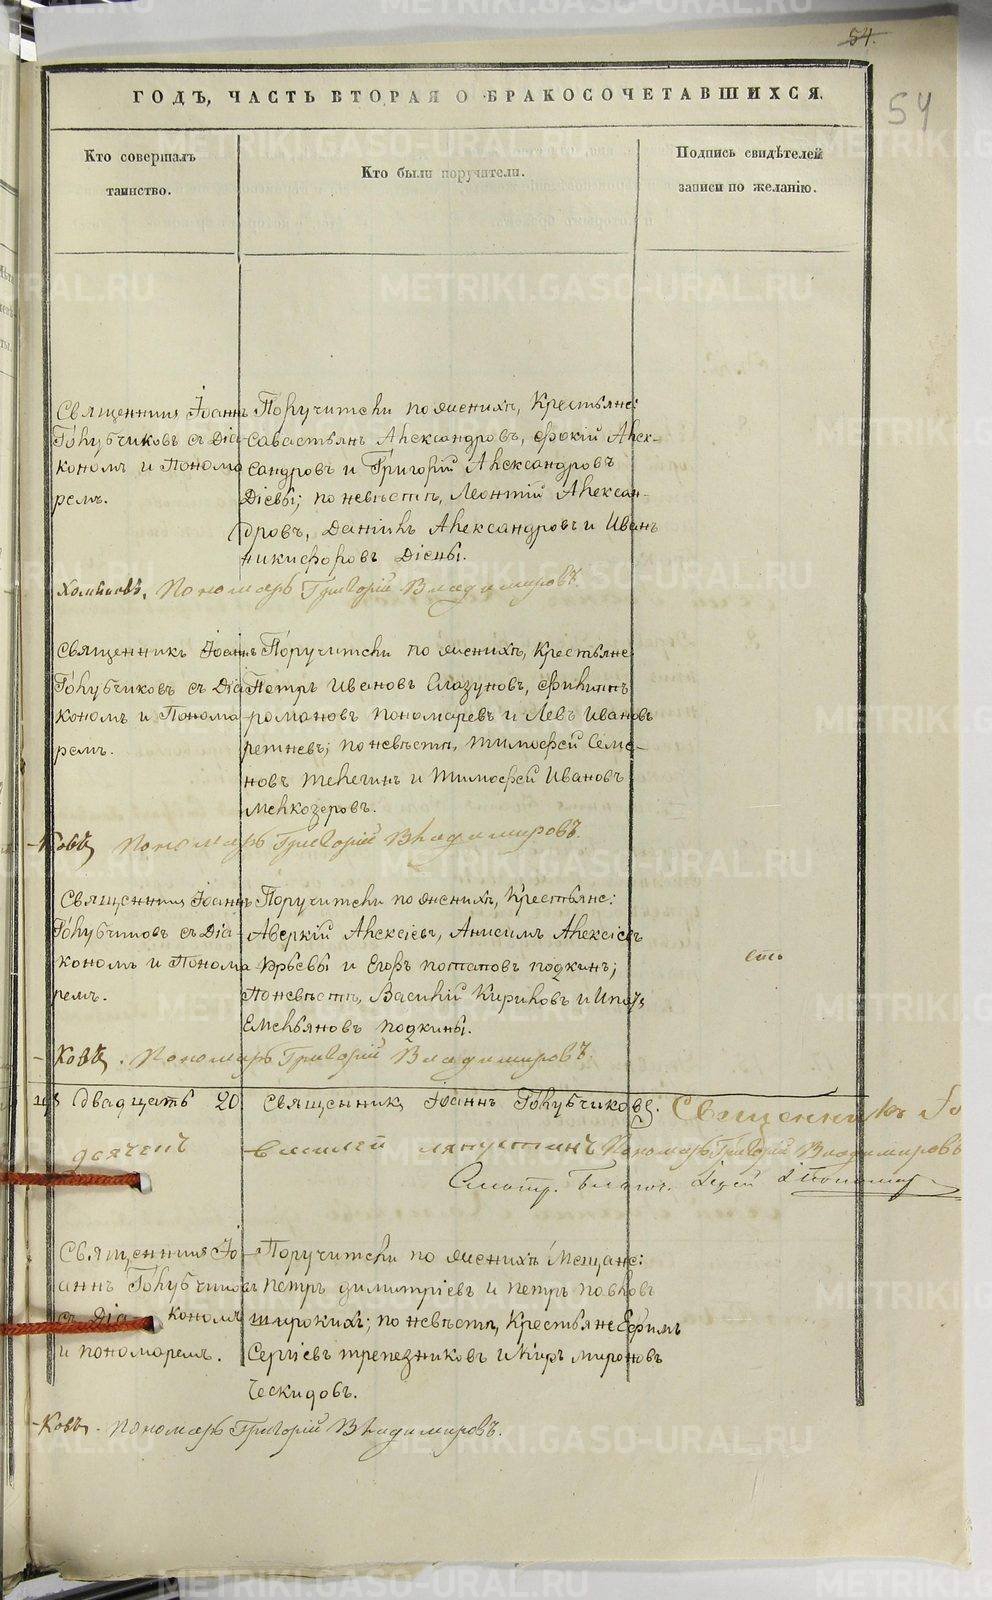 54.
54
ГОДЪ, ЧАСТЬ ВТОРАЯ О БРАКОСОЧЕТАВШИХСЯ.
Кто совершалъ таинство.
Кто были поручители.
Подпись свидѣтелей записи по желанію.
Священник Іоаннъ Голубчиковъ съ Діакономъ и Пономаремъ.
Поручители по женихѣ, Крестьяне:
Савастьянъ Александровъ, Фокій Алек-
сандровъ и Григорій Александровъ
Діевы; по невѣстѣ, Леонтій Алексан-
дровъ, Даніилъ Александровъ и Иванъ
Никифоровъ Діевы.
Пономарь Григорій Владимировъ.
Священникъ Іоаннъ
Голубчиковъ съ Діа
кономъ и Понома
ремъ.
Поручители по женихѣ, Крестьяне
Петръ Ивановъ Глазуновъ, Филиппъ
Романовъ Пономаревъ и Левъ Ивановъ
Ретневъ; по невѣстѣ, Тимофей Семе-
новъ Телегинъ и Тимофей Ивановъ
Мелкозеровъ.
-ковъ Пономарь Григорій Владимировъ.
Священник Іоаннъ
Голубчиковъ съ Діа-
кономъ и Понома
ремъ.
Поручители по женихѣ, Крестьяне:
Аверкій Алексіевъ, Анисимъ Алексіевъ
Юрьевы и Егоръ Потаповъ Подкинъ;
По невѣстѣ, Василій Кириловъ и
Емельяновъ Подкины.
- Ковъ. Пономарь Григорій Владимировъ.
двадцать 20 Священник Іоаннъ Голубчиковъ. Священникъ Іо
Пономарь Григорій Владимировъ
Священник Іо
аннъ Голубчиковъ
съ Діакономъ
и пономаремъ.
Поручители по женихѣ Мещане:
Петръ Димитріевъ и Петръ Павловъ
Широкихъ; по невѣстѣ, Крестьяне Ефимъ
Сергіевъ Трепезниковъ и Киръ Мироновъ
Ческидовъ.
-Ковъ. Пономарь Григорій Владимировъ.
METRIKI.GASO-URAL.RU